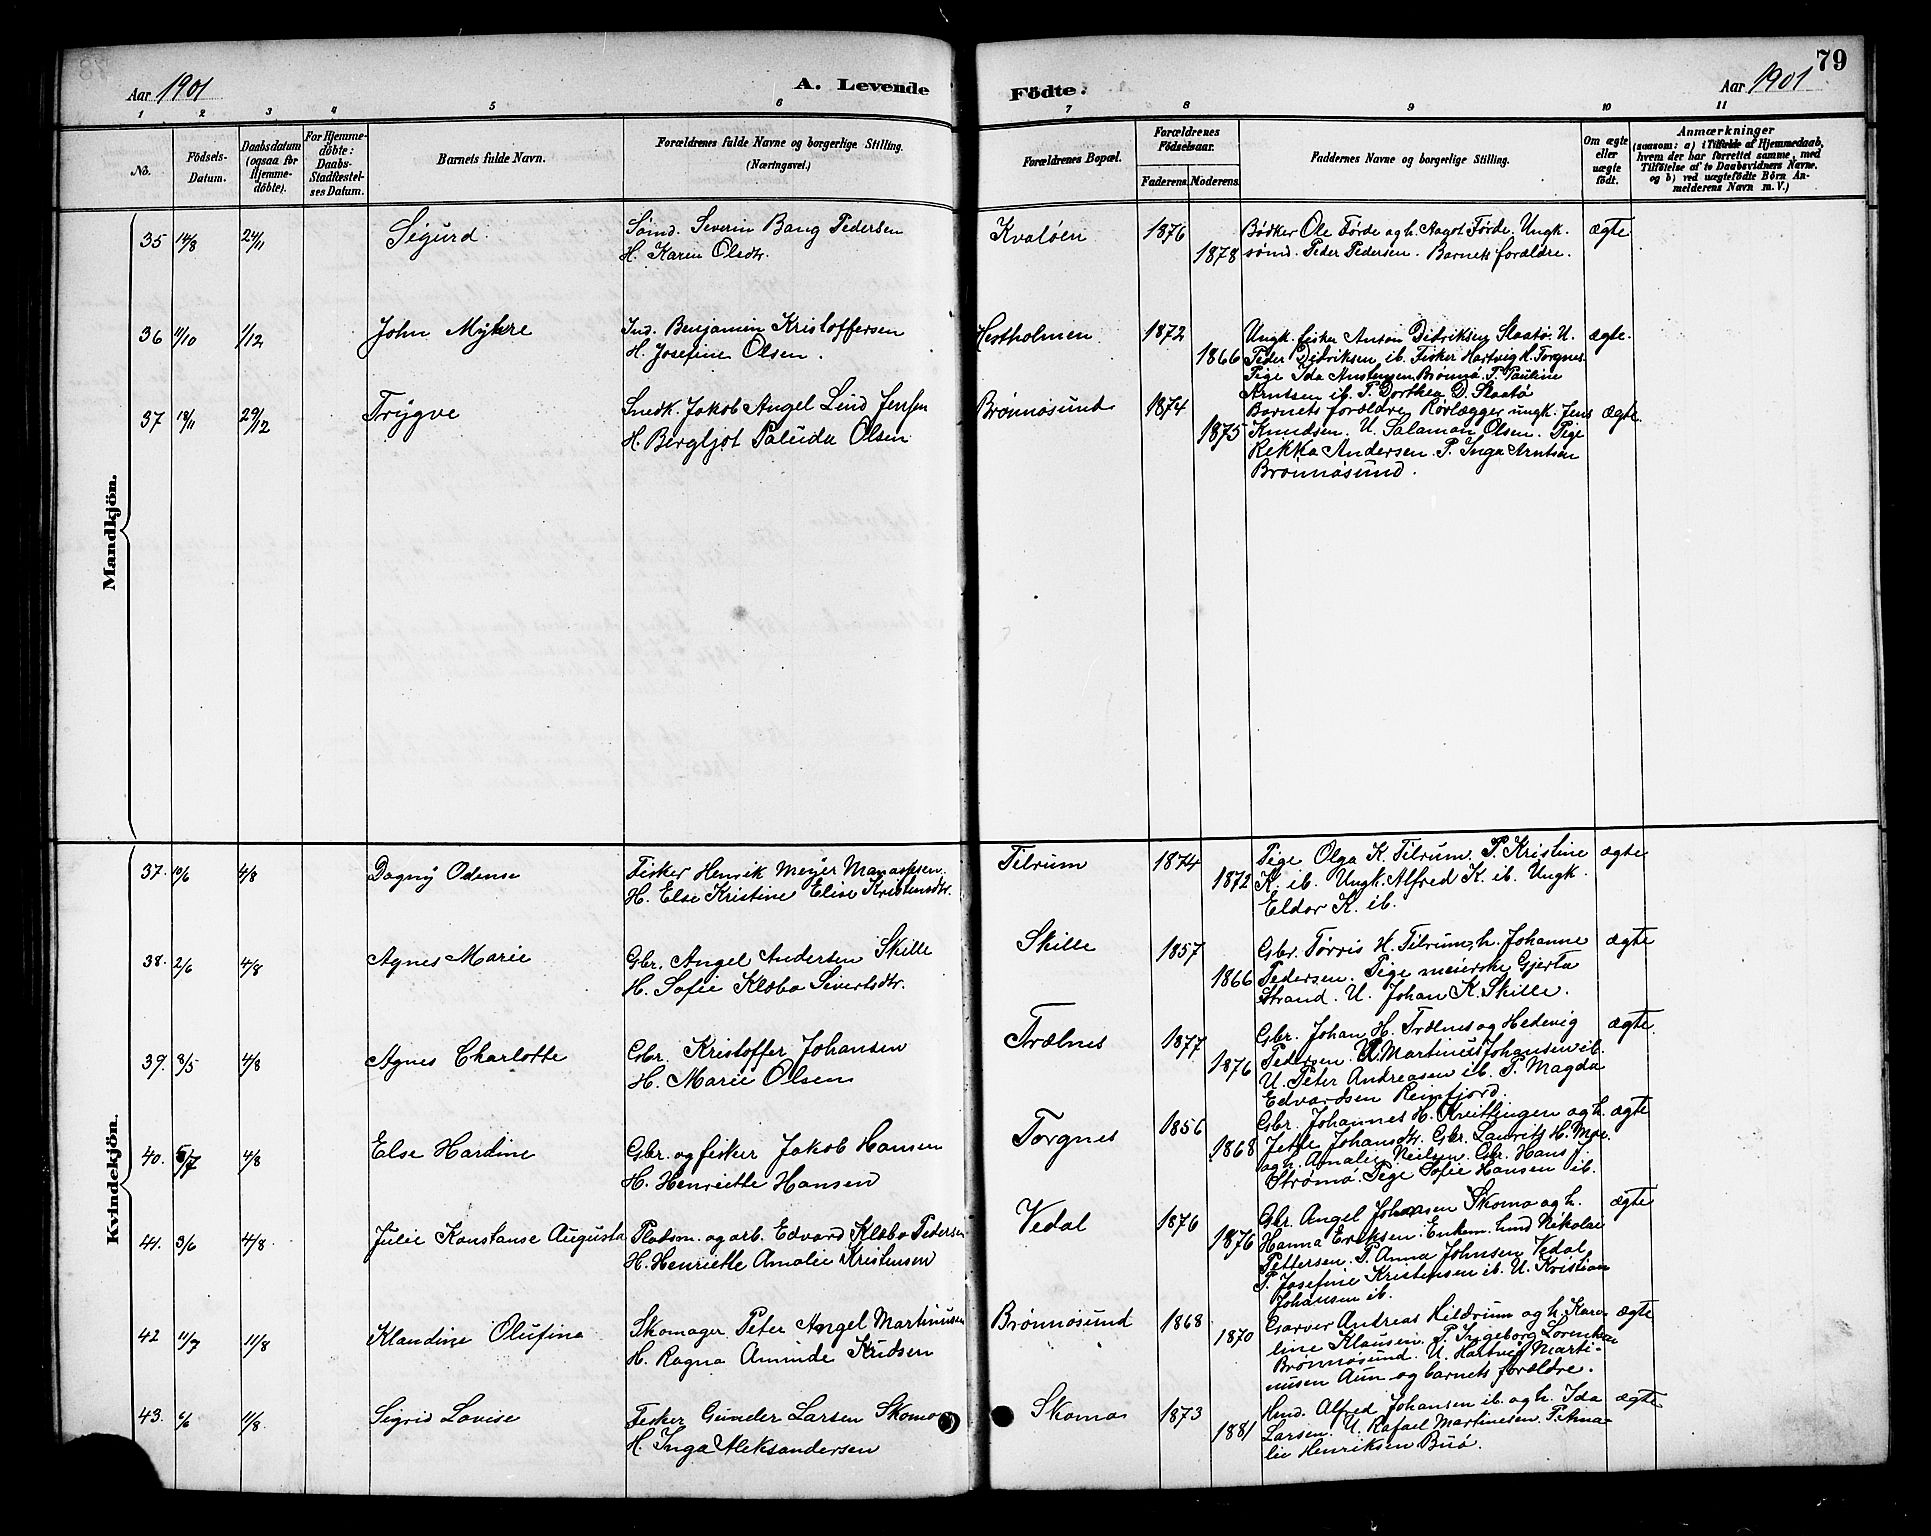 79
Aar 1901
A. Levende
Födte.
Aar 1901
1 2 3 4 5 6 7 8 9 10 11
No.
Födsels-Datum.
Daabsdatum (ogsaa for Hjemme-döbte).
For Hjemme-döbte: Daabs-Stadfæstel-ses Datum.
Barnets fulde Navn.
Forældrenes fulde Navne og borgerlige Stilling.
(Næringsvei.)
Forældrenes Bopæl.
Forældrenes Födselsaar.
Faderens. Moderens.
Faddernes Navne og borgerlige Stilling.
Om ægte eller uægte födt.
Anmærkninger
(saasom: a) i Tilfælde af Hjemmedaab,
hvem der har forrettet samme, med
Tilföielse af to Daabsvidners Navne,
og b) ved uægtefödte Börn An-
melderens Navn m. V.)
Mandkjön.
35 14/8 24/11 Sigurd. Sømd. Severin Bang Pedersen Kvaløen 1876 Bødker Ole Førde og h. Aagot Førde. Ungk. ægte
H. Karen Olsdtr. 1878 sømd. Peder Pedersen. Barnets forældre.
36 11/10 1/12 John Mykre Ind. Benjamin Kristoffersen Hestholmen 1872 Ungk. fisker Anton Didriksen Slaatø. U. ægte.
H. Josefine Olsen. 1866 Peder Didriksen ib. Fisker Hartvig H. Torgnes.
Pige Ida Anstensen Brønnø. P. Pauline
Arntsen ib. P. Dorthea D. Slaatø
37 18/11 29/12 Trygve Snedk. Jakob Angel Lind Jensen Brønnøsund 1874 Barnets forældre, Rørlægger ungk. Jens ægte
H. Bergljot Paluda Olsen 1875 Knudsen. U. Salamon Olsen. Pige
Rikka Andersen. P. Inga Arntsen
Brønnøsund.
Kvindekjön.
37. 10/6 4/8 Dagny Odense Fisker Henrik Meyer Manassen. Tilrum 1874 Pige Olga K. Tilrum. P. Kristine ægte
H. Else Kristine Elise Kristensdtr. 1872 K. ib. Ungk. Alfred K. ib. Ungk.
Eldor K. ib.
38. 2/6 4/8 Agnes Marie Gbr. Angel Andersen Skille Skille 1857 Gbr. Tørris H. Tilrum, h. Johanne ægte
H. Sofie Klæbo Sivertsdtr. 1866 Pedersen. Pige meierske Gjerta
Strand. U. Johan K. Skille.
39. 8/5 4/8 Agnes Charlotte Gbr. Kristoffer Johansen Trælnes 1877 Gbr. Johan H. Trælnes og Hedevig ægte.
H. Marie Olsen 1876 Pedersen. U. Martinus Johansen ib.
U. Peter Andreasen ib. P. Magda
Edvardsen Reinfjord.
40. 5/7 4/8 Else Hardine Gbr. og fisker Jakob Hansen Torgnes 1856 Gbr. Johannes H. Kveitlingen og h. ægte
H. Henriette Hansen 1868 Jette Johansdtr. Gbr. Laurits H. Moe
og h. Amalie Nielsen. Gbr. Hans J.
Strømø. Pige Sofie Hansen ib.
41. 3/6 4/8 Julie Konstanse Augusta Pladsm. og arb. Edvard Klæbo Pedersen Vedal 1876 Gbr. Angel Johansen Skomo og h. ægte
H. Henriette Amalie Kristensen 1876 Hanna Eriksen. Enkem. hmd Nikolai
Pettersen. P. Anna Johnsen Vedal
P. Josefine Kristensen ib. U. Kristian
Johansen ib.
42 11/7 11/8 Klandine Olufina Skomager Peter Angel Martinusen Brønnøsund 1868 Garver Andreas Hildrum og h. Karo- ægte
H. Ragna Amunde Knudsen 1870 line Klausen. P. Ingeborg Lorentsen
Brønnøsund. U. Hartvig Marti-
nusen Aun og barnets forældre.
43. 6/6 11/8 Sigrid Lovise Fisker Gunder Larsen Skomo Skomo 1873 Hmd. Alfred Johansen ib. og h. Ida ægte
H. Inga Aleksandersen 1881 Larsen. U. Rafael Martinesen. P. Ama-
lie Henriksen Buø.